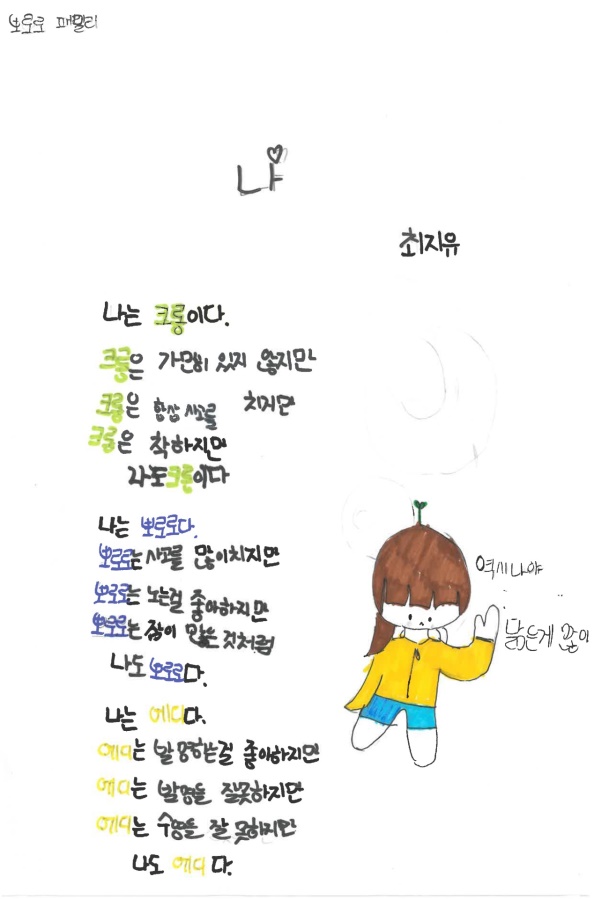 뽀로로 패밀리
나
최지유
나는 크롱이다.
크롱은 가만히 있지 않지만
크롱은 항상 사고를 치지만
크롱은 착하지만
나도 크롱이다
나는 뽀로로다.
뽀로로는 사고를 많이치지만
뽀로로는 노는걸 좋아하지만
뽀로로는 잠이 많은 것처럼
나도 뽀로로다.
나는 에디다.
에디는 발명하는걸 좋아하지만
에디는 발명을 잘못하지만
에디는 수영을 잘 못하지만
나도 에디다.
역시 나야
닮은게 많아